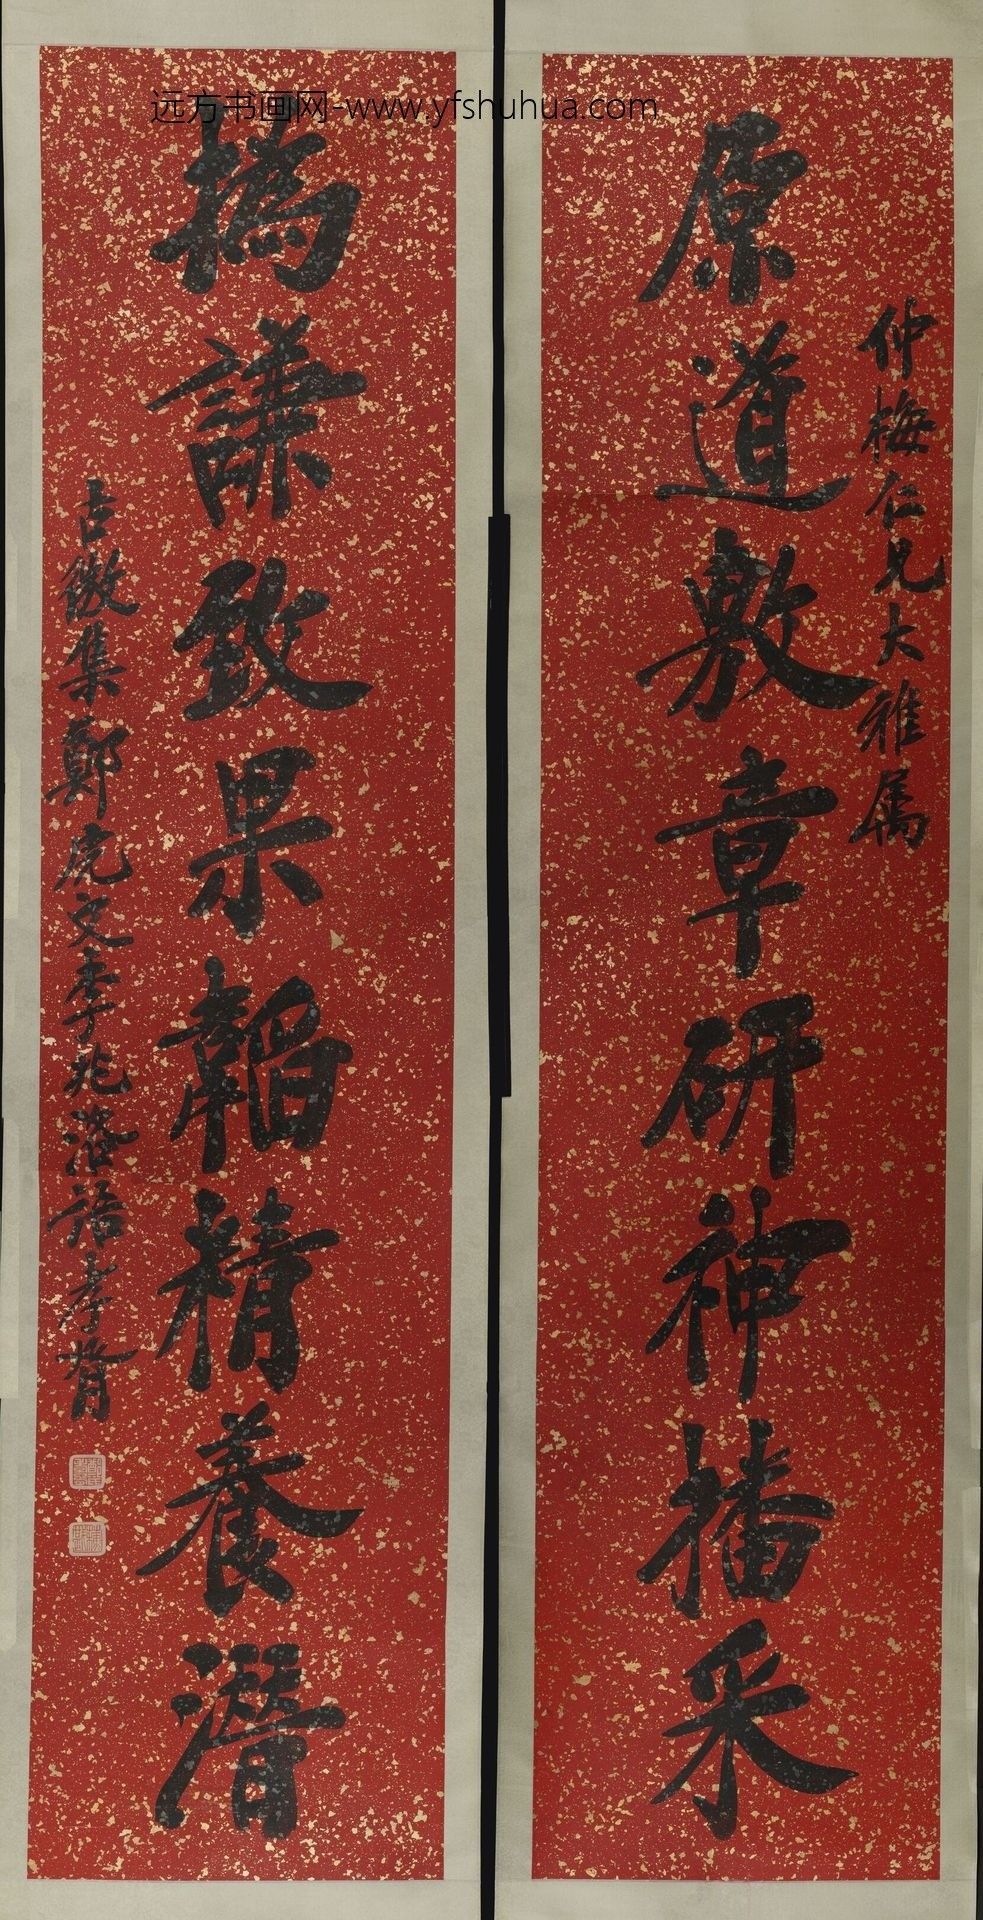 远方书画网-www.yfshuhua.com
仲梅仁兄大雅属
原道敷章研神播采
撝谦致果韬精養潛
古微集鄭虎文李兆洛語孝胥